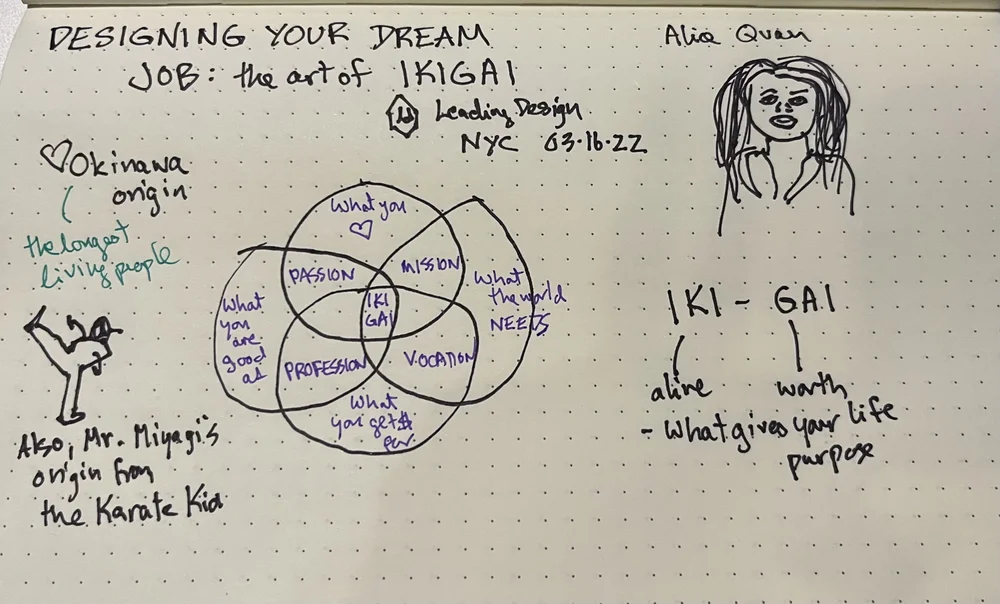 DESIGNING YOUR DREAM
JOB: the art of IKIGAI
Leading Design
NYC 03.16.22
Alia Quan
♡ Okinawa
origin
the longest
living people
Also, Mr. Miyagi's
origin from
the Karate Kid
What you
♡
PASSION
MISSION
What
you
are
good
at
IKI
GAI
What
the world
NEEDS
PROFESSION
VOCATION
What
you get $
for
IKI - GAI
alive
worth
- What gives your life
purpose